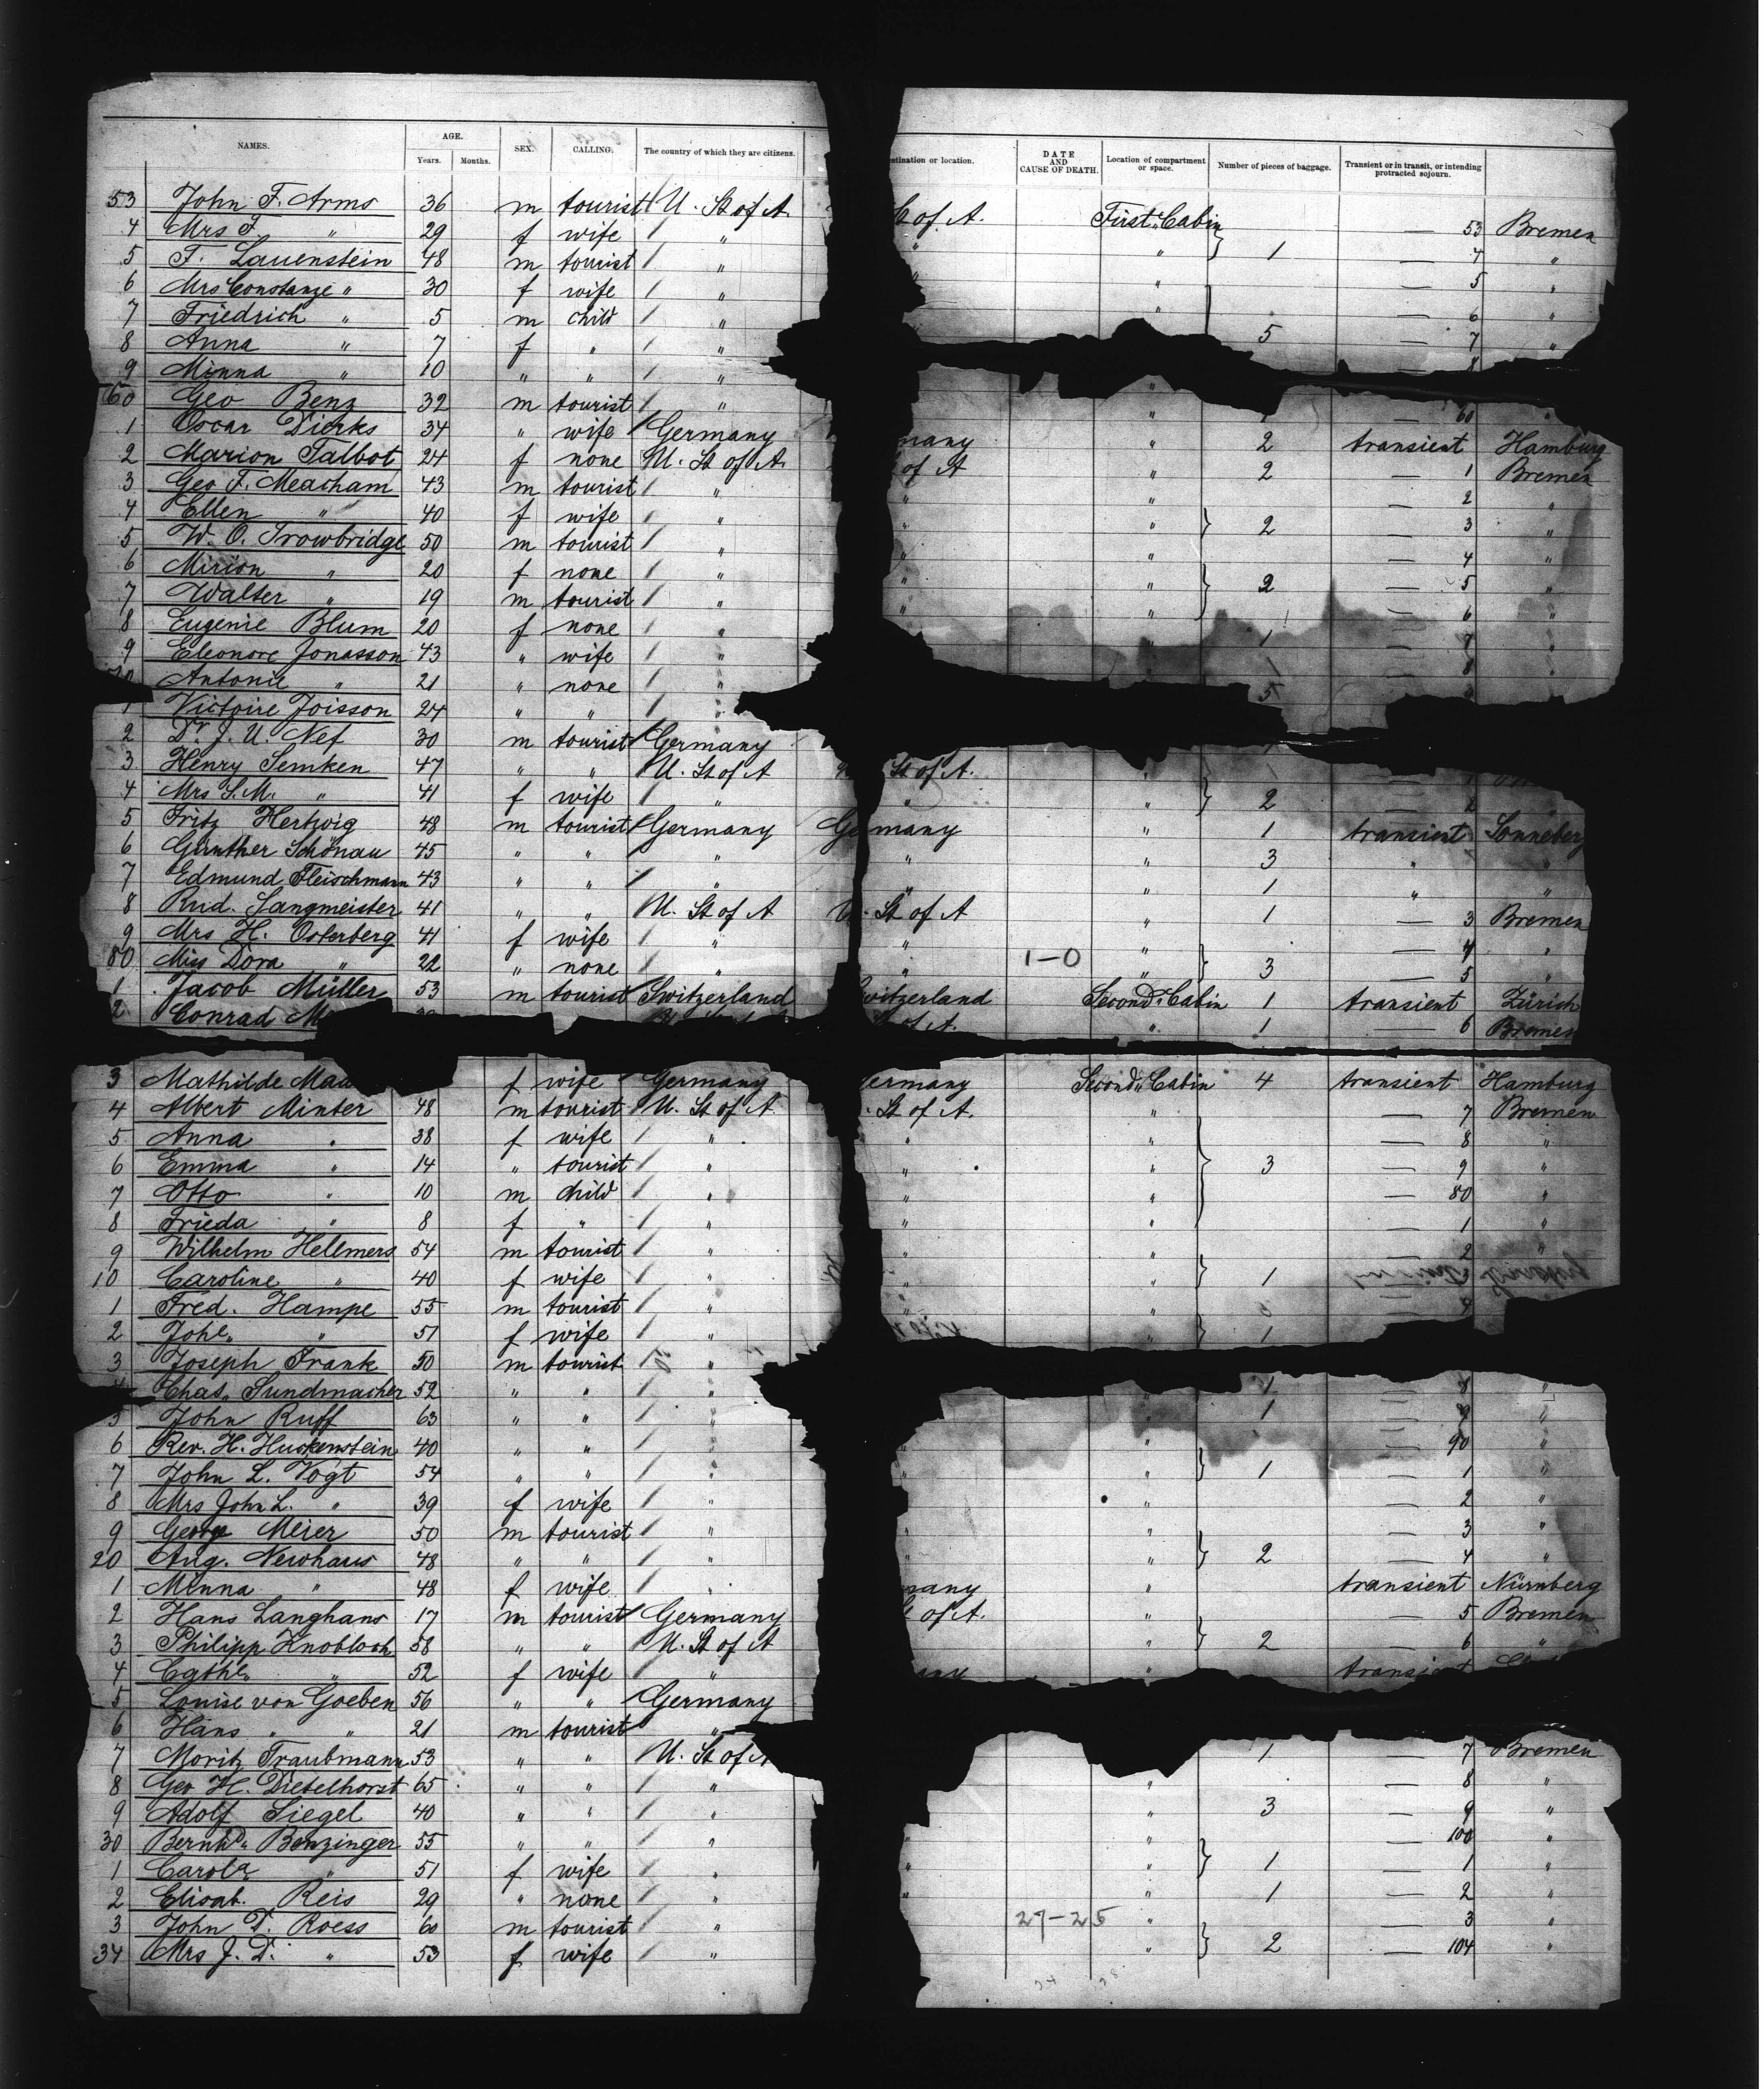 NAMES. AGE. Years. Months. SEX. CALLING. The country of which they are citizens. stination or location. DATE AND CAUSE OF DEATH. Location of compartment or space. Number of pieces of baggage. Transient or in transit, or intending protracted sojourn.
53 John F. Arms 36 m tourist U. St of A. St of A. First Cabin — 53 Bremen
4 Mrs F. " 29 f wife " " 1 — 4 "
5 F. Lauenstein 48 m tourist " " " — 5 "
6 Mrs Constanze " 30 f wife " " — 6 "
7 Friedrich " 5 m child " " 5 — 7 "
8 Anna " 7 f " " 8
9 Minna " 10 " " " "
60 Geo Benz 32 m tourist " " 1 — 60 "
1 Oscar Dierks 34 " wife Germany many " 2 transient Hamburg
2 Marion Talbot 24 f none U. St of A. of A " 2 — 1 Bremen
3 Geo F. Meacham 43 m tourist " " " — 2 "
4 Ellen " 40 f wife " " " 2 — 3 "
5 W. O. Trowbridge 50 m tourist " " " — 4 "
6 Mirion " 20 f none " " " 2 — 5 "
7 Walter " 19 m tourist " " " — 6 "
8 Eugenie Blum 20 f none " " 1 — 7 "
9 Eleonore Jonasson 43 " wife " " — 8 "
70 Antonie " 21 " none " 5
1 Victoire Joisson 24 " " "
2 Dr. J. U. Nef 30 m tourist Germany
3 Henry Semken 47 " " U. St of A St of A. " — 1
4 Mrs S. M. " 41 f wife " " " 2 — 2
5 Fritz Hertwig 48 m tourist Germany Germany " 1 transient Sonneberg
6 Günther Schönau 45 " " " " " 3 " "
7 Edmund Fleischmann 43 " " " " " 1 " "
8 Rud. Langmeister 41 " " U. St of A U. St of A " 1 — 3 Bremen
9 Mrs H. Osterberg 41 f wife " " " — 4 "
80 Miss Dora " 22 " none " " 1–0 " 3 — 5 "
1 Jacob Müller 53 m tourist Switzerland witzerland Second Cabin 1 transient Zürich
2 Conrad M of A. " 1 — 6 Bremen
3 Mathilde Maa f wife Germany ermany Second Cabin 4 transient Hamburg
4 Albert Minter 48 m tourist U. St of A St of A. " — 7 Bremen
5 Anna " 38 f wife " " " — 8 "
6 Emma " 14 " tourist " " " 3 — 9 "
7 Otto " 10 m child " " " — 80 "
8 Frieda " 8 f " " " " — 1 "
9 Wilhelm Hellmers 54 m tourist " " " — 2 "
10 Caroline " 40 f wife " " " 1
1 Fred. Hampe 55 m tourist " " "
2 Johe. " 51 f wife " " 1
3 Joseph Frank 50 m tourist "
4 Chas. Sundmacher 52 " " " 1 — 8 "
5 John Ruff 63 " " " " 1 — 9 "
6 Rev. H. Huckenstein 40 " " " " — 90 "
7 John L. Vogt 54 " " " " 1 — 1 "
8 Mrs John L. " 39 f wife " " — 2 "
9 George Meier 50 m tourist " " " — 3 "
20 Aug. Newhaus 48 " " " " " 2 — 4 "
1 Minna " 48 f wife " many " transient Nürnberg
2 Hans Langhans 17 m tourist Germany of A. " — 5 Bremen
3 Philipp Knobloch 58 " " U. St of A " 2 — 6 "
4 Cathe. " 52 f wife " " transient
5 Louise von Goeben 56 " " Germany
6 Hans " " 21 m tourist "
7 Moritz Traubmann 53 " " U. St of A 1 — 7 Bremen
8 Geo H. Dietelhorst 65 " " " " — 8 "
9 Adolf Siegel 40 " " " " 3 — 9 "
30 Bernhd. Benzinger 55 " " " " " — 100 "
1 Carola " 51 f wife " " " 1 — 1 "
2 Elisab. Reis 29 " none " " " 1 — 2 "
3 John D. Roess 60 m tourist " 27–25 " — 3 "
34 Mrs J. D. " 53 f wife " " 2 — 104 "